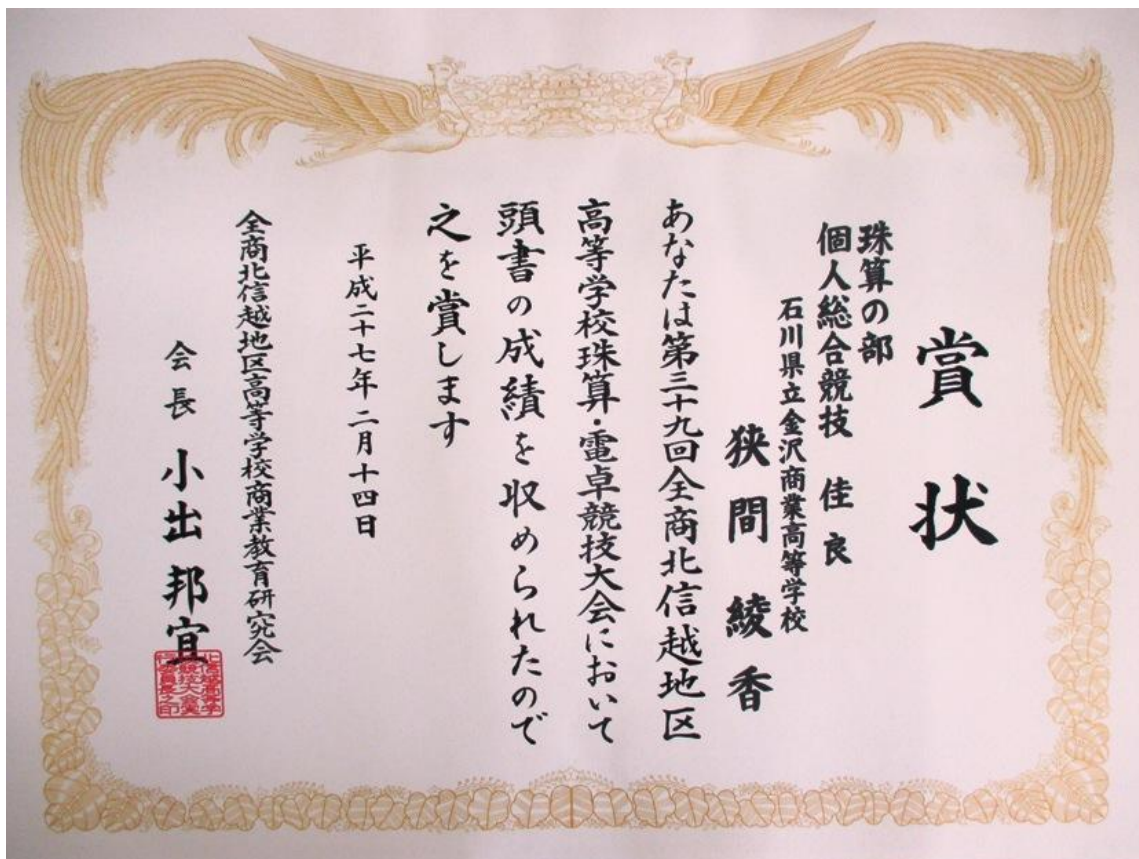 賞状
珠算の部
個人総合競技 佳良
石川県立金沢商業高等学校
狭間綾香
あなたは第三十九回全商北信越地区
高等学校珠算・電卓競技大会において
頭書の成績を収められたので
之を賞します
平成二十七年二月十四日
全商北信越地区高等学校商業教育研究会
会長 小出邦宜